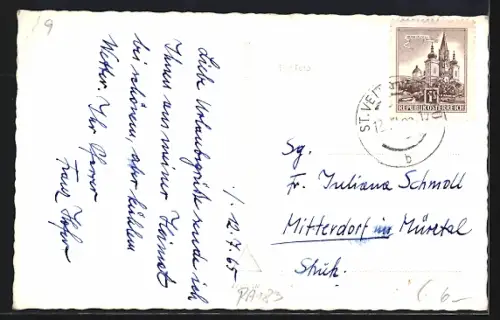 19
1. 12.7.65
Liebe Urlaubsgrüße sende ich
Ihnen aus meiner Heimat
bei schönem, aber kühlem
Wetter. Ihr Pfarrer
Franz
REPUBLIK ÖSTERREICH
ST. VEIT
12.
b
Sg.
Fr. Juliana Schmoll
Mitterdorf im Mürztal
Stmk.
PA183
6.-